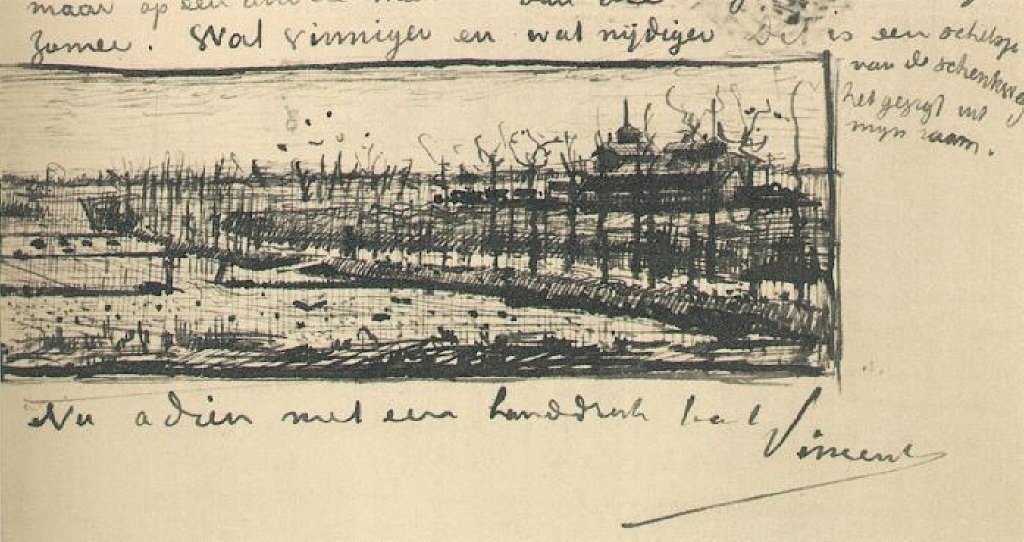 maar op een andere van
zomer. Wat vinniger en wat nijdiger Dit is een schetsje
van de schenkweg
het gezigt uit
mijn raam.
Nu adieu met een handdruk t.à.t.
Vincent